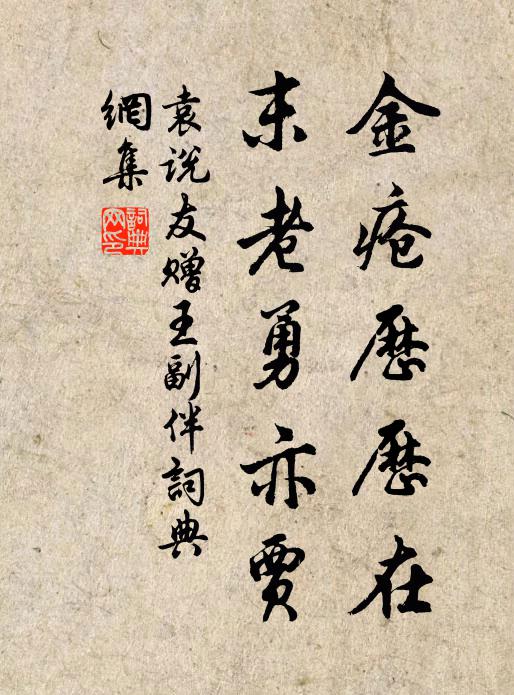 金疮歷歷在
未老勇亦賈
袁说友赠王副伴詞典
網集
詞典網印